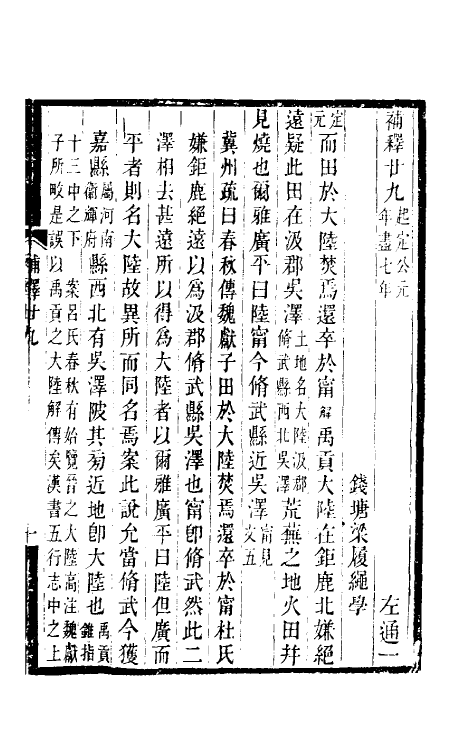 補釋廿九起定公元年盡七年 左通一
錢塘梁履繩學
定元而田於大陸焚焉還卒於甯解禹貢大陸在鉅鹿北嫌絕
遠疑此田在汲郡吳澤土地名大陸汲郡脩武縣西北吳澤荒蕪之地火田幷
見燒也爾雅廣平曰陸甯今脩武縣近吳澤甯見文五
冀州疏曰春秋傳魏獻子田於大陸焚焉還卒於甯杜氏
嫌鉅鹿絕遠以爲汲郡脩武縣吳澤也甯卽脩武然此二
澤相去甚遠所以得爲大陸者以爾雅廣平曰陸但廣而
平者則名大陸故異所而同名焉案此說允當脩武今獲
嘉縣屬河南衛輝府縣西北有吳澤陂其旁近地卽大陸也禹貢錐指
十三中之下 案呂氏春秋有始覽晉之大陸高注魏獻
子所畋是誤以禹貢之大陸解傳矣漢書五行志中之上
補釋廿九
一